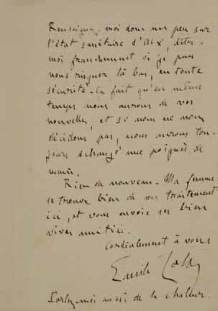 Renseignez-moi donc un peu sur
l'état sanitaire d'Aix, dites-
moi franchement si je puis
nous risquer là bas, en toute
sécurité. En fait qu'en même
temps nous aurons de vos
nouvelles, et si nous ne nous
décidons pas, nous aurons tou-
jours échangé une poignée de
main.
Rien de nouveau. Ma femme
se trouve bien de son traitement
ici, et vous envoie ses bien
vives amitiés.
Cordialement à vous
Emile Zola
Parlez-moi aussi de la chaleur.